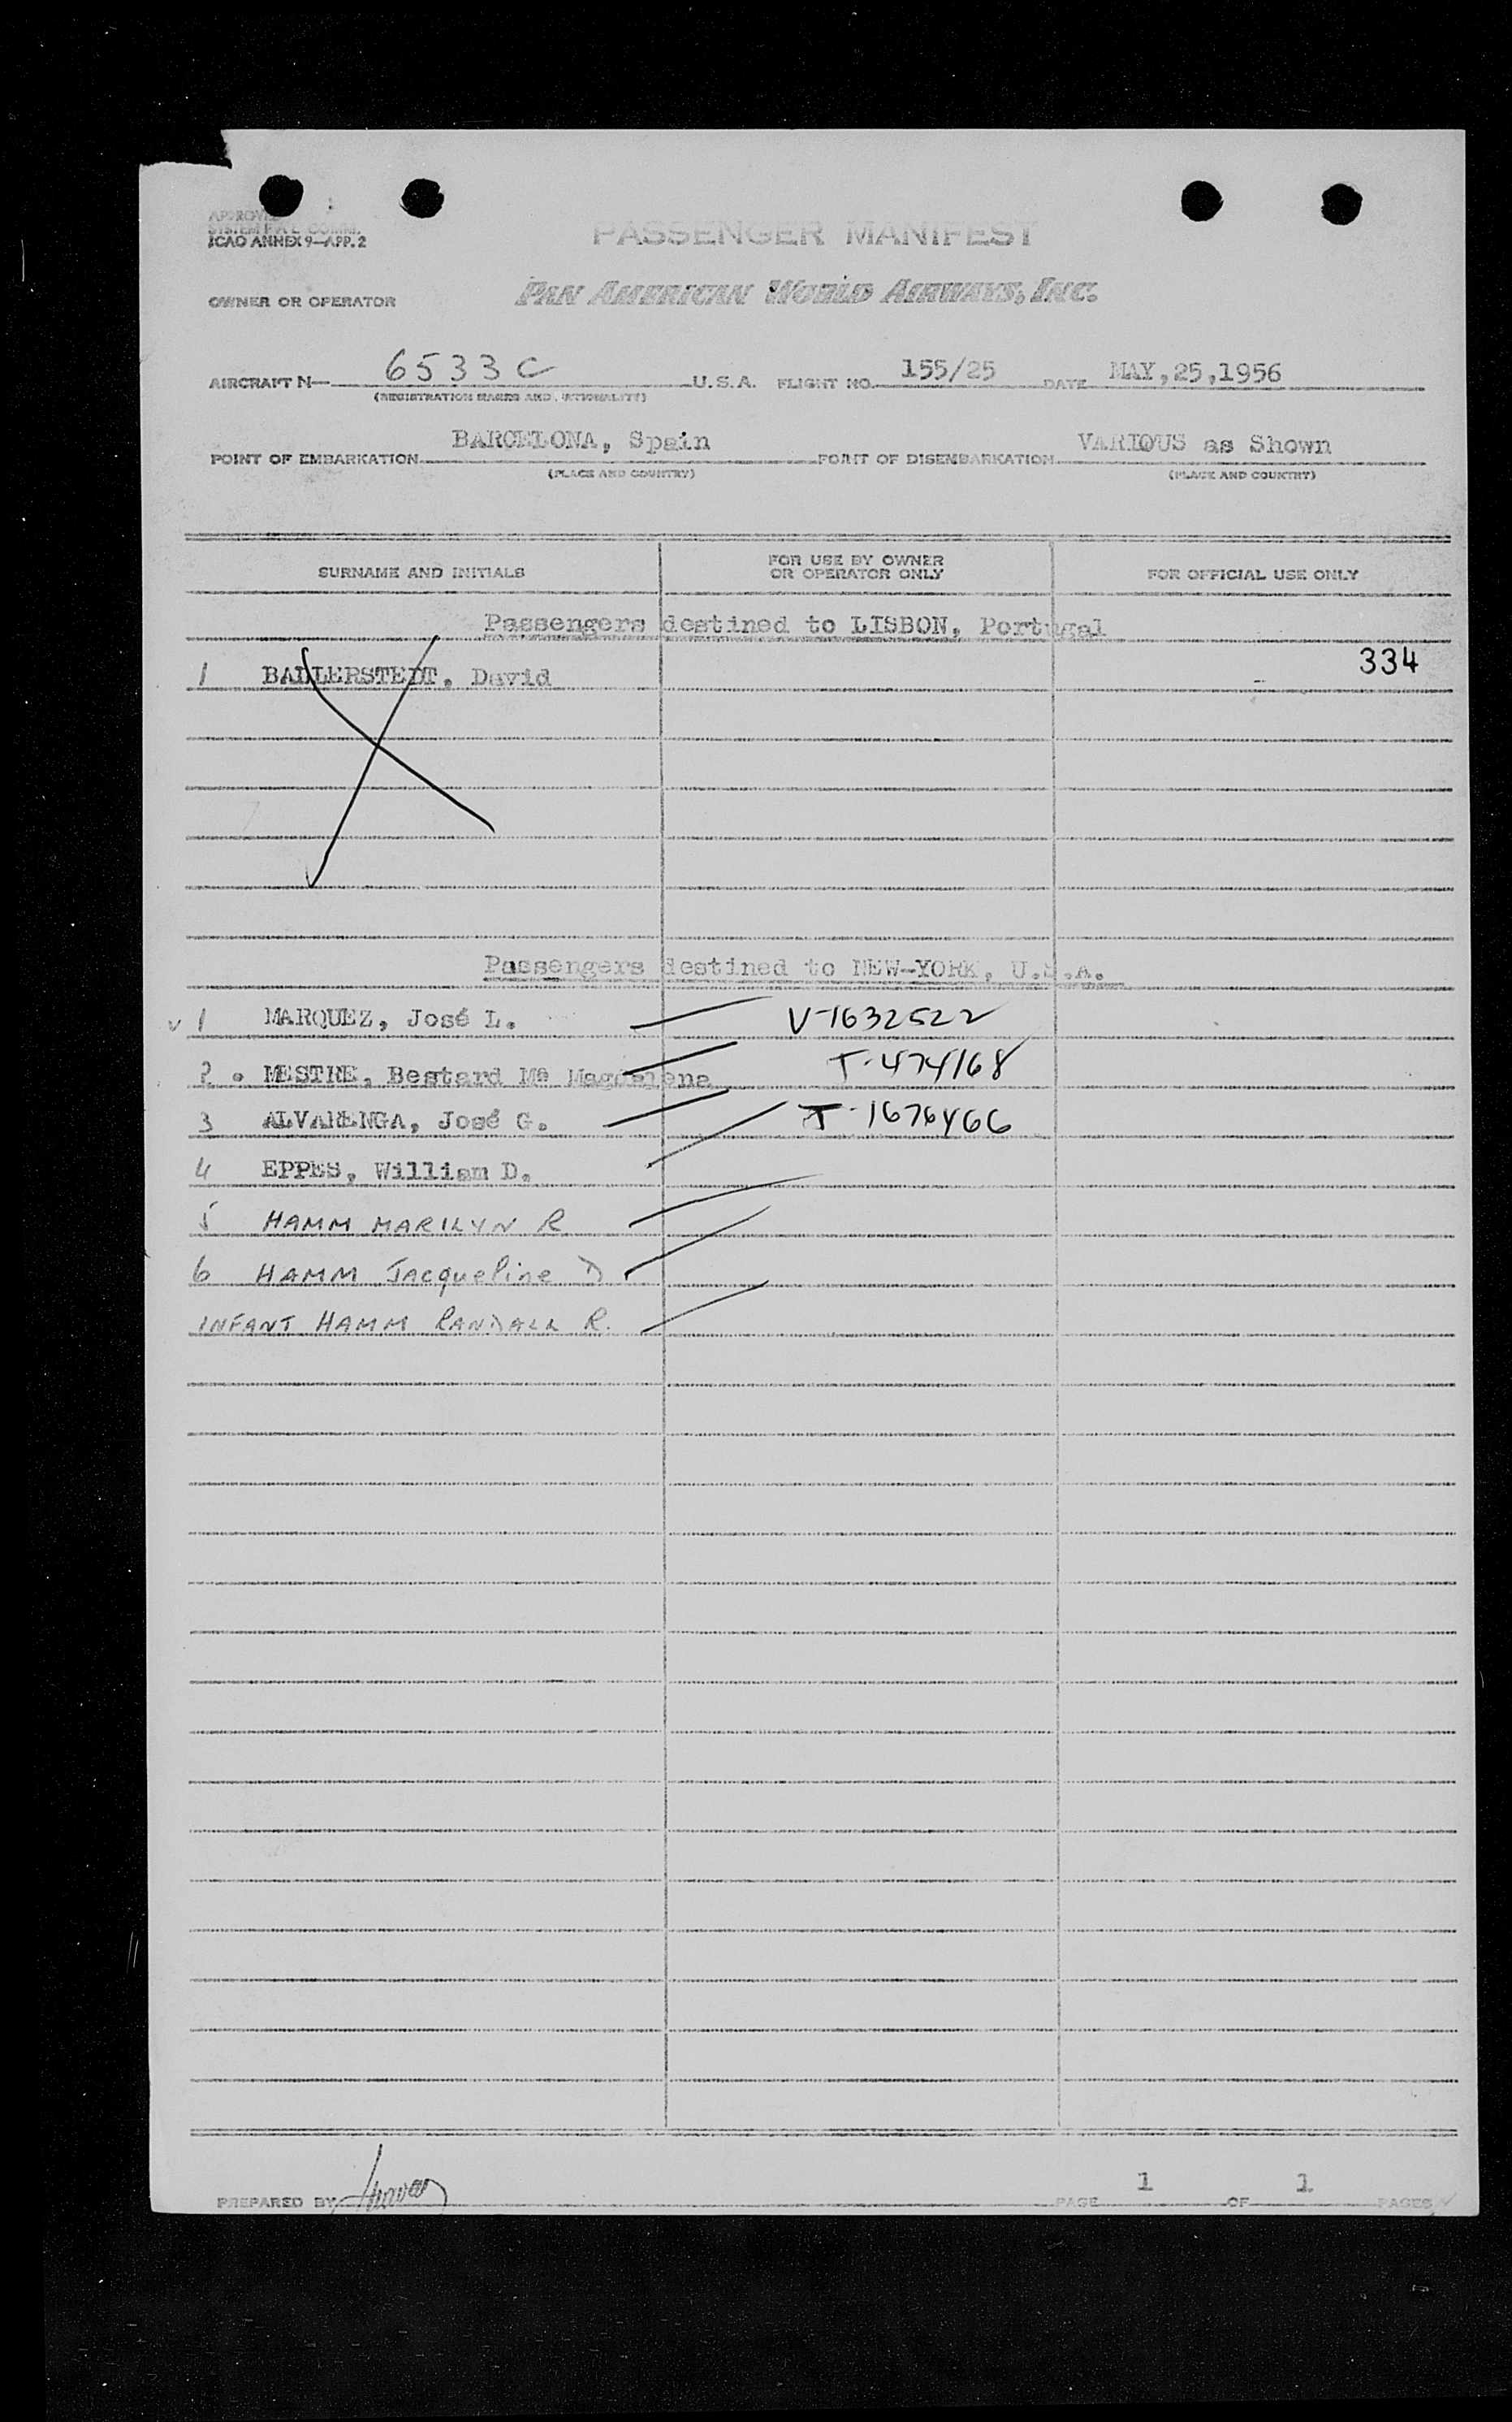 APPROVED
SYSTEM FAL COMM.
ICAO ANNEX 9—APP. 2
PASSENGER MANIFEST
OWNER OR OPERATOR PAN AMERICAN WORLD AIRWAYS, INC.
AIRCRAFT N— 6533C U.S.A. FLIGHT NO. 155/25 DATE MAY,25,1956
(REGISTRATION MARKS AND NATIONALITY)
POINT OF EMBARKATION BARCELONA, Spain POINT OF DISEMBARKATION VARIOUS as Shown
(PLACE AND COUNTRY) (PLACE AND COUNTRY)
SURNAME AND INITIALS FOR USE BY OWNER OR OPERATOR ONLY FOR OFFICIAL USE ONLY
Passengers destined to LISBON, Portugal
334
1 BALLERSTEDT, David
Passengers destined to NEW-YORK, U.S.A.
1 MARQUEZ, José L. V-1632522
2 MESTRE, Bestard Mª Magdalena T-474168
3 ALVARENGA, José G. T-1676466
4 EPPES, William D.
5 HAMM MARILYN R
6 HAMM Jacqueline D
INFANT HAMM RANDALL R.
PREPARED BY PAGE 1 OF 1 PAGES